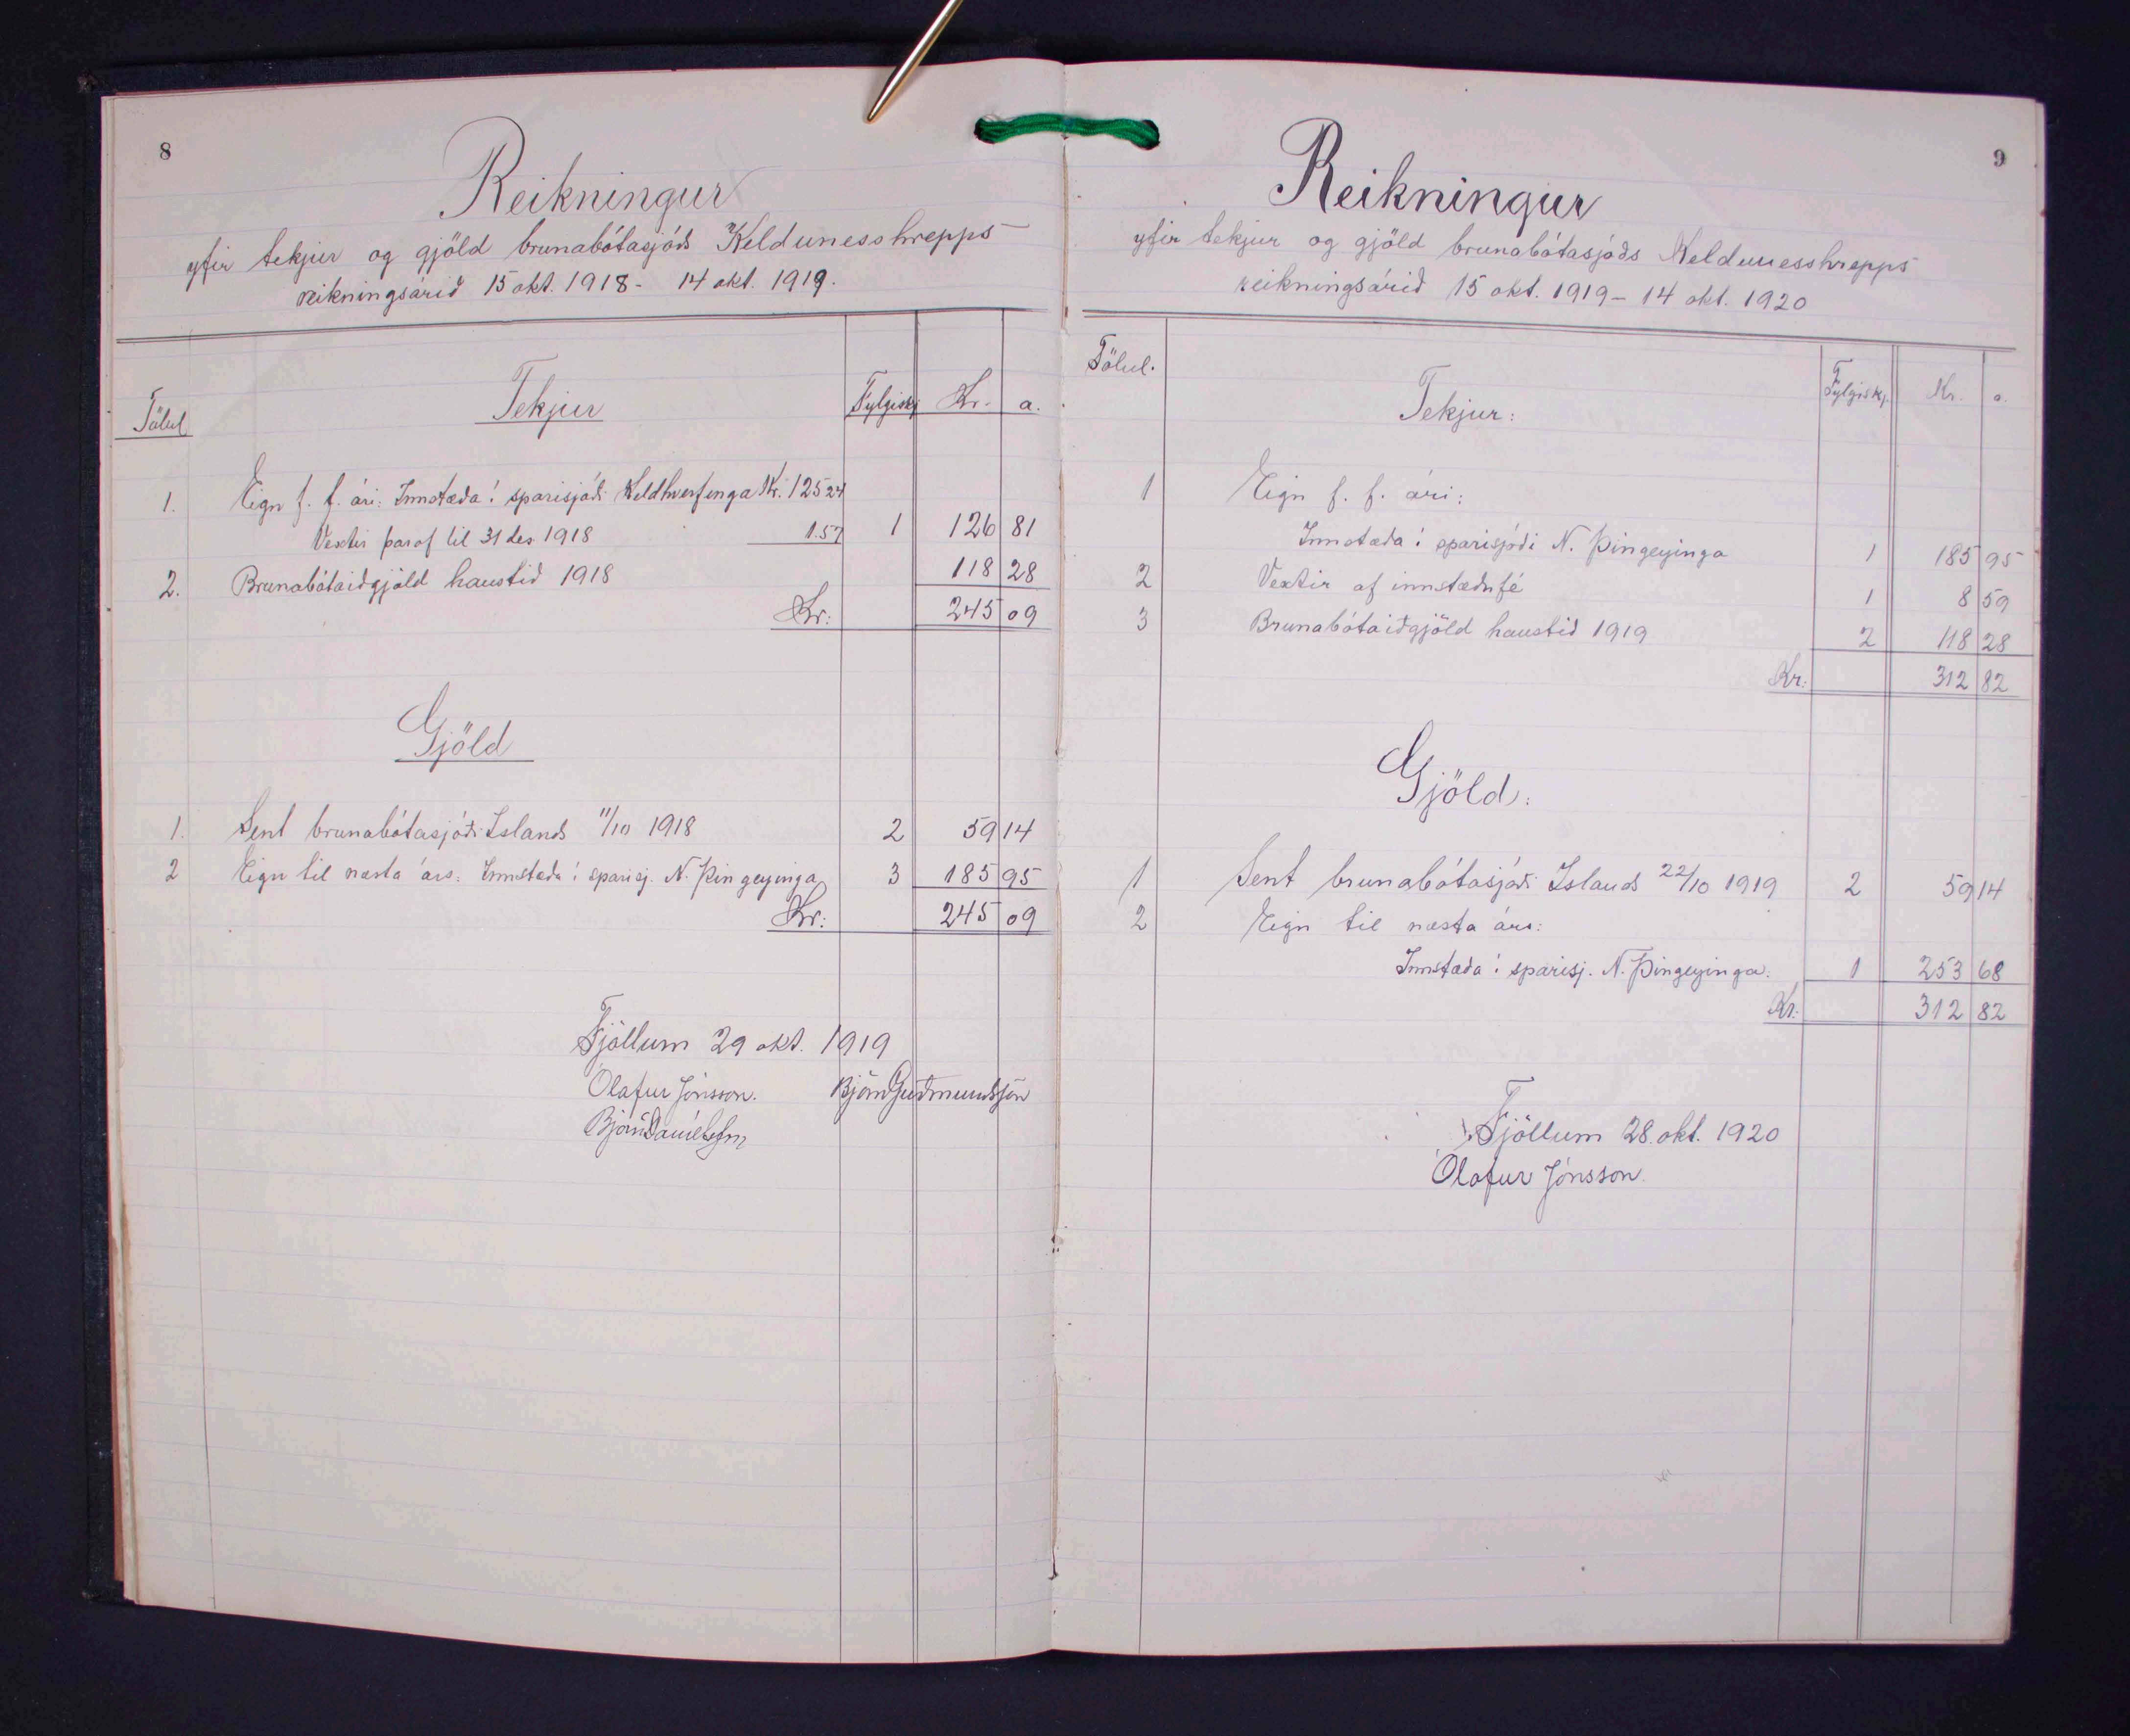 8
Reikningur
yfir tekjur og gjöld brunabótasjóðs Keldunesshrepps
reikningsárið 15 okt. 1918 - 14 okt. 1919.
Tölul Tekjur Fylgiskj Kr. a.
1. Eign f. f. ári: Innstæða í sparisjóði Keldhverfinga Kr. 125 24
Vextir þar af til 31 des 1918 1.57 1 126 81
2. Brunabótaiðgjöld haustið 1918 118 28
Kr: 245 09
Gjöld
1. Sent brunabótasjóði Islands 11/10 1918 2 59 14
2 Eign til næsta árs: Innstæða í sparisj. N. Þingeyinga 3 185 95
Kr: 245 09
Fjöllum 29 okt. 1919
Ólafur Jónsson. Björn Guðmundsson
Björn Daníelsson
9
Reikningur
yfir tekjur og gjöld brunabótasjóðs Keldunesshrepps
reikningsárið 15 okt. 1919 - 14 okt. 1920
Tölul. Tekjur: Fylgiskj. Kr. a.
1 Eign f. f. ári:
Innstæða í sparisjóði N. Þingeyinga 1 185 95
2 Vextir af innstæðufé 1 8 59
3 Brunabótaiðgjöld haustið 1919 2 118 28
Kr: 312 82
Gjöld:
1 Sent brunabótasjóði Islands 22/10 1919 2 59 14
2 Eign til næsta árs:
Innstæða í sparisj. N. Þingeyinga. 1 253 68
Kr: 312 82
Fjöllum 28. okt. 1920
Ólafur Jónsson.